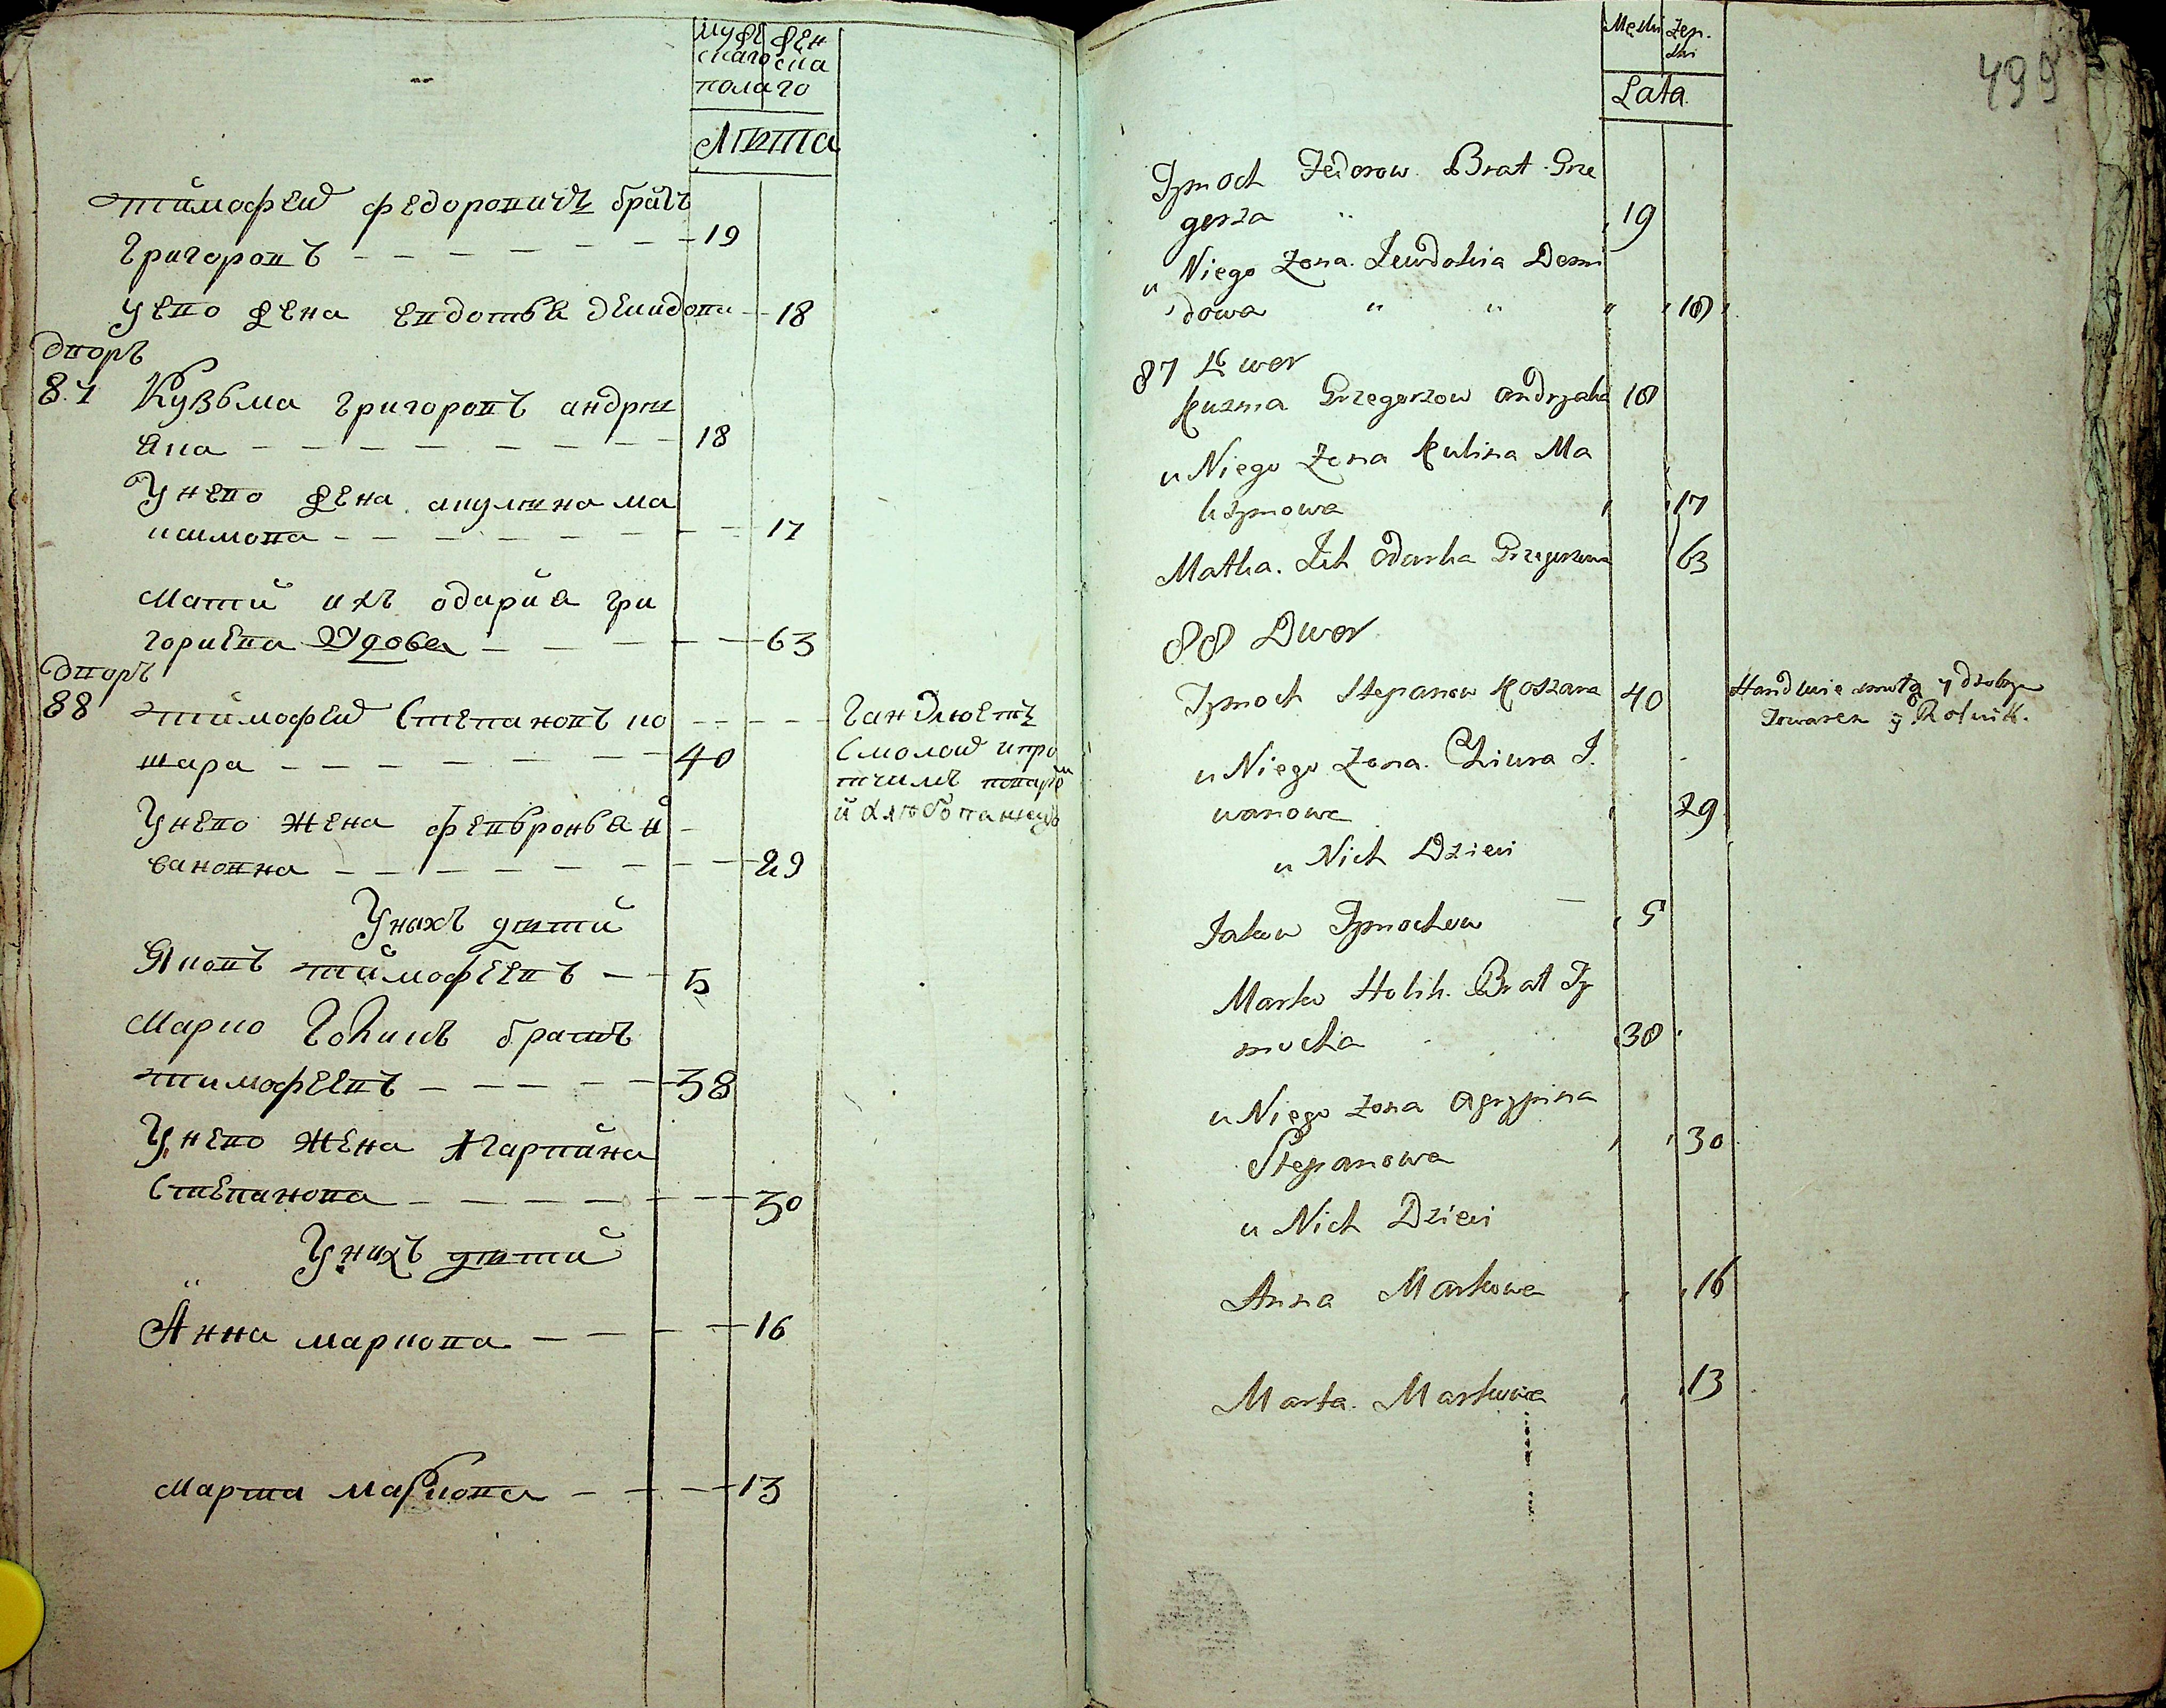 муже жен
скаго ска
пола го
Лѣта
тимофей федоровичъ братъ
григоровъ 19
у ево жена евдотья демидова 18
дворъ
87 Кузьма григоровъ андрѣ
ева 18
У нево жена акулѣна ма
ксимова 17
мати ихъ одария гри
гориева Удова 63
дворъ
88 тимофей Степановъ ко
шара 40
гандлюетъ
смолой и про
тчимъ товаро
й хлѣбопашецъ
У нево жена февронья и
вановна 29
У нихъ дѣти
Яковъ тимофеевъ 5
Марко Голикъ братъ
тимофеевъ 38
У нево жена Агарпина
Степанова 30
У нихъ дѣти
Анна маркова 16
Марта маркова 13
499
Męski Żen.
ski
Lata
Tymoch Fedorow Brat Grze
gorza 19
u Niego Żona Jewdokia Demi
dowa 18
87 Dwor
Kuzma Grzegorzow Andrzeia 18
u Niego Żona Kulina Ma
ksymowa 17
Matka Ich Odarka Grzegorzowa 63
88 Dwor
Tymoch Stepanow Koszara 40
Handluie smołą y drobnym
Towarem y Rolnik.
u Niego Żona Chiwra I
wanowa 29
u Nich Dzieci
Jakow Tymochow 5
Marko Holik Brat Ty
mocha 38
u Niego Żona Agrypina
Stepanowa 30
u Nich Dzieci
Anna Markowa 16
Marta Markowa 13